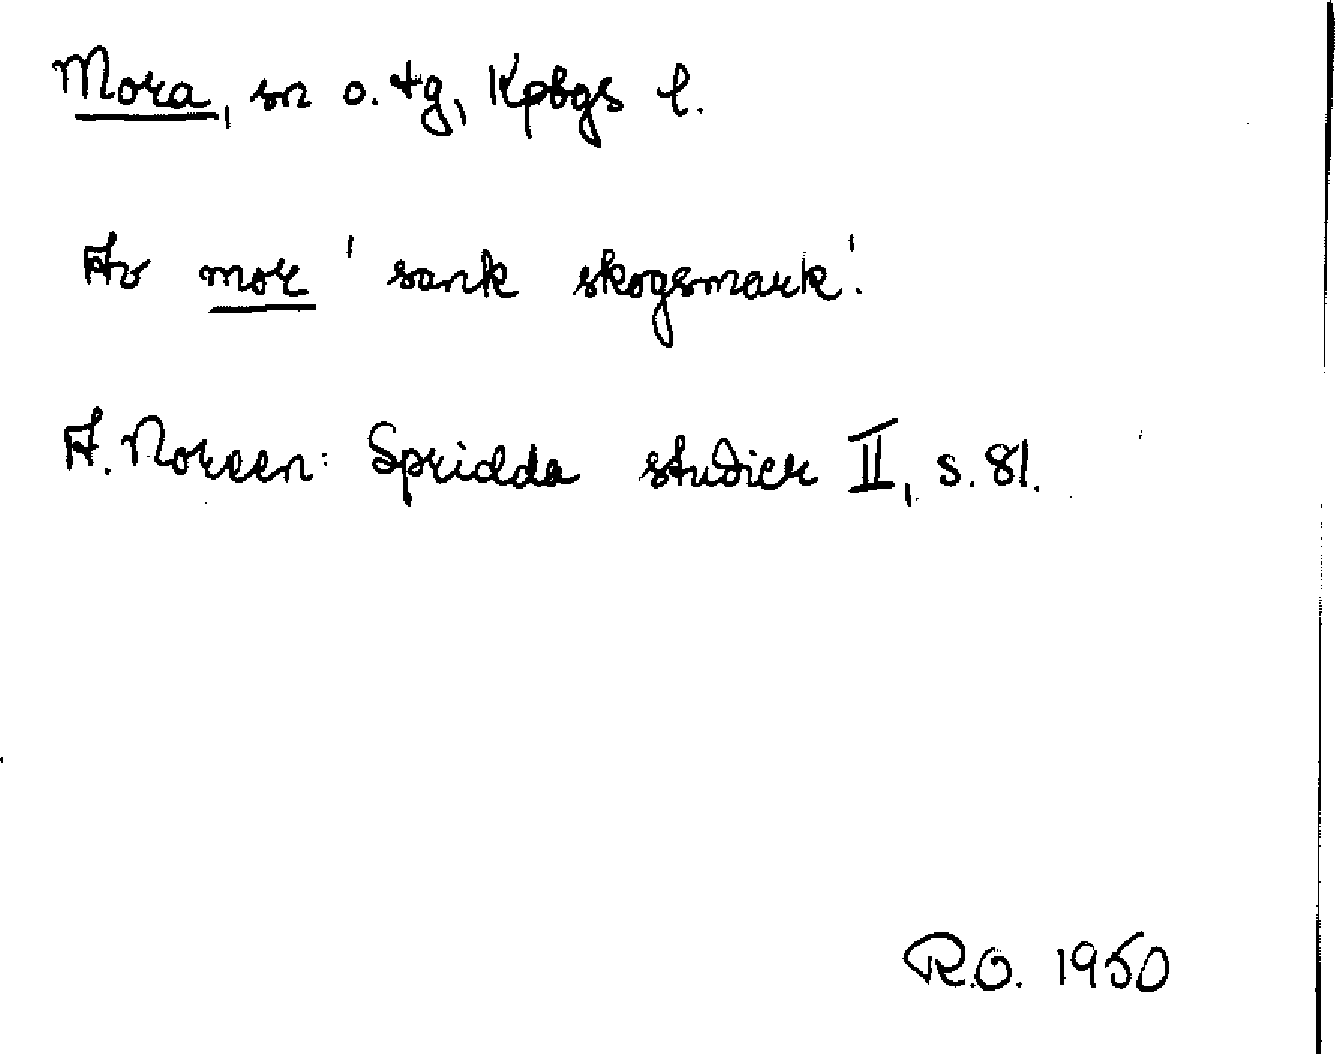 Mora, sn o. tg, Kpbgs l.
Av mor 'sank skogsmark'.
A. Noreen: Spridda studier II, s. 81.
R.O. 1950